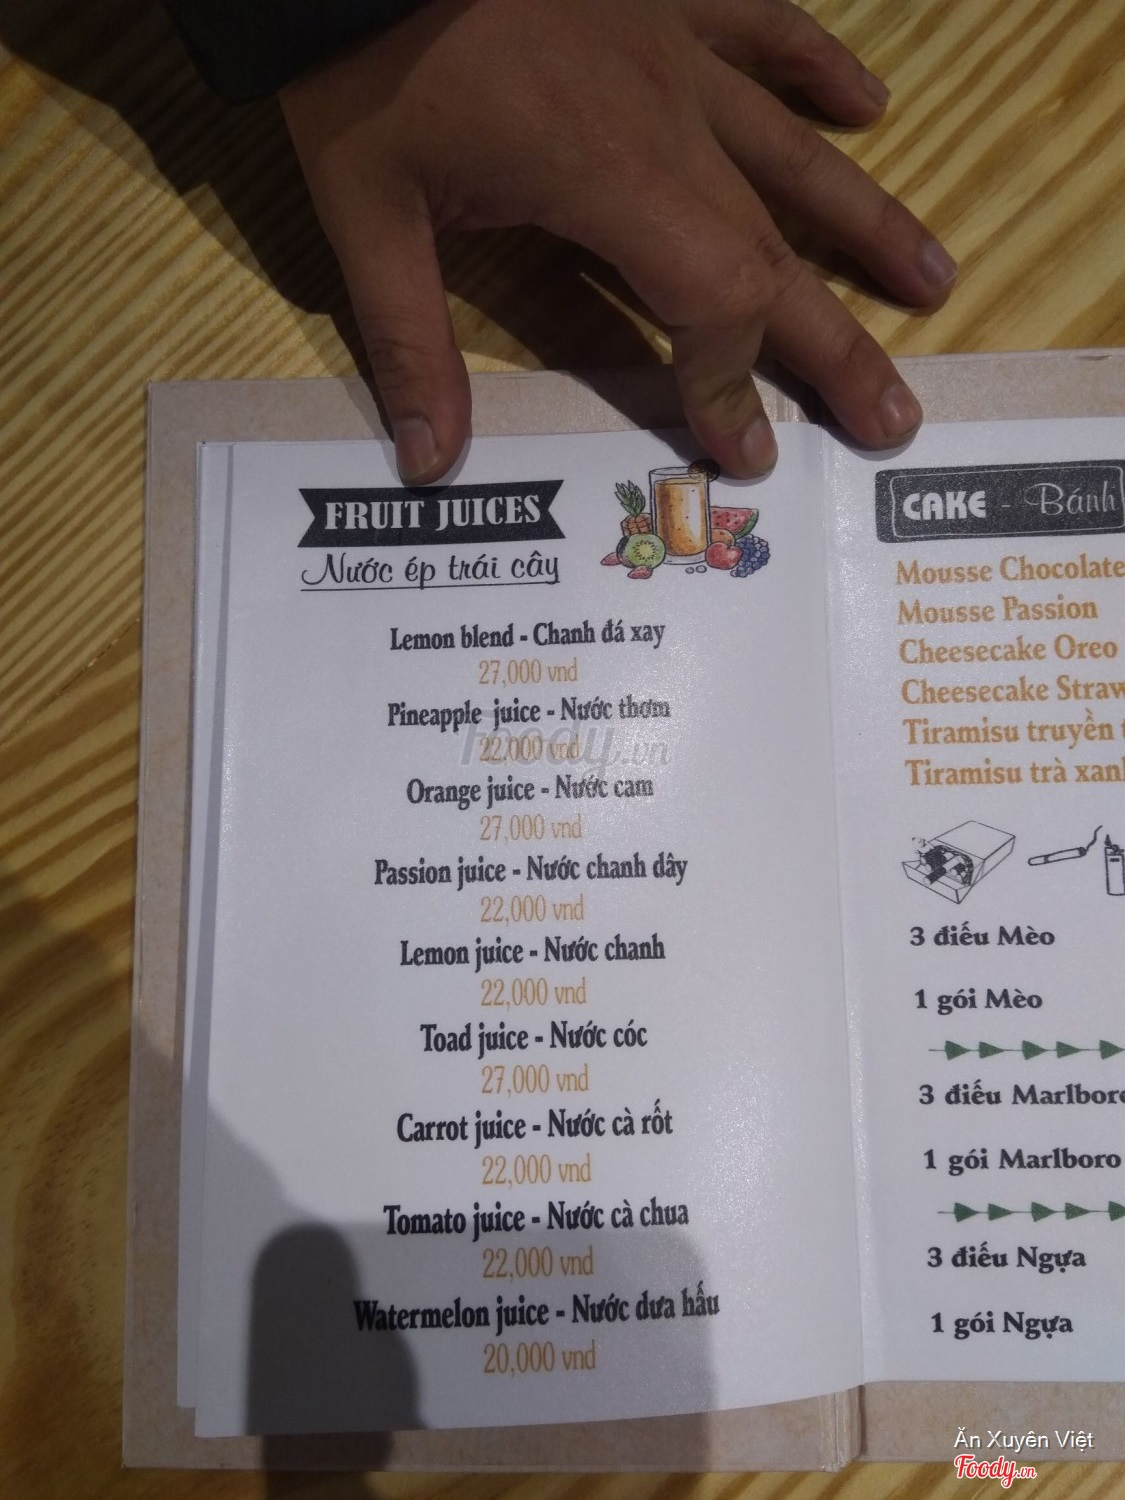 FRUIT JUICES
Nước ép trái cây
Lemon blend - Chanh đá xay
27,000 vnd
Pineapple juice - Nước thơm
22,000 vnd
Orange juice - Nước cam
27,000 vnd
Passion juice - Nước chanh dây
22,000 vnd
Lemon juice - Nước chanh
22,000 vnd
Toad juice - Nước cóc
27,000 vnd
Carrot juice - Nước cà rốt
22,000 vnd
Tomato juice - Nước cà chua
22,000 vnd
Watermelon juice - Nước dưa hấu
20,000 vnd
Foody.vn
CAKE - Bánh
Mousse Chocolate
Mousse Passion
Cheesecake Oreo
Cheesecake Straw
Tiramisu truyền t
Tiramisu trà xanh
3 điếu Mèo
1 gói Mèo
3 điếu Marlboro
1 gói Marlboro
3 điếu Ngựa
1 gói Ngựa
Ăn Xuyên Việt
Foody.vn